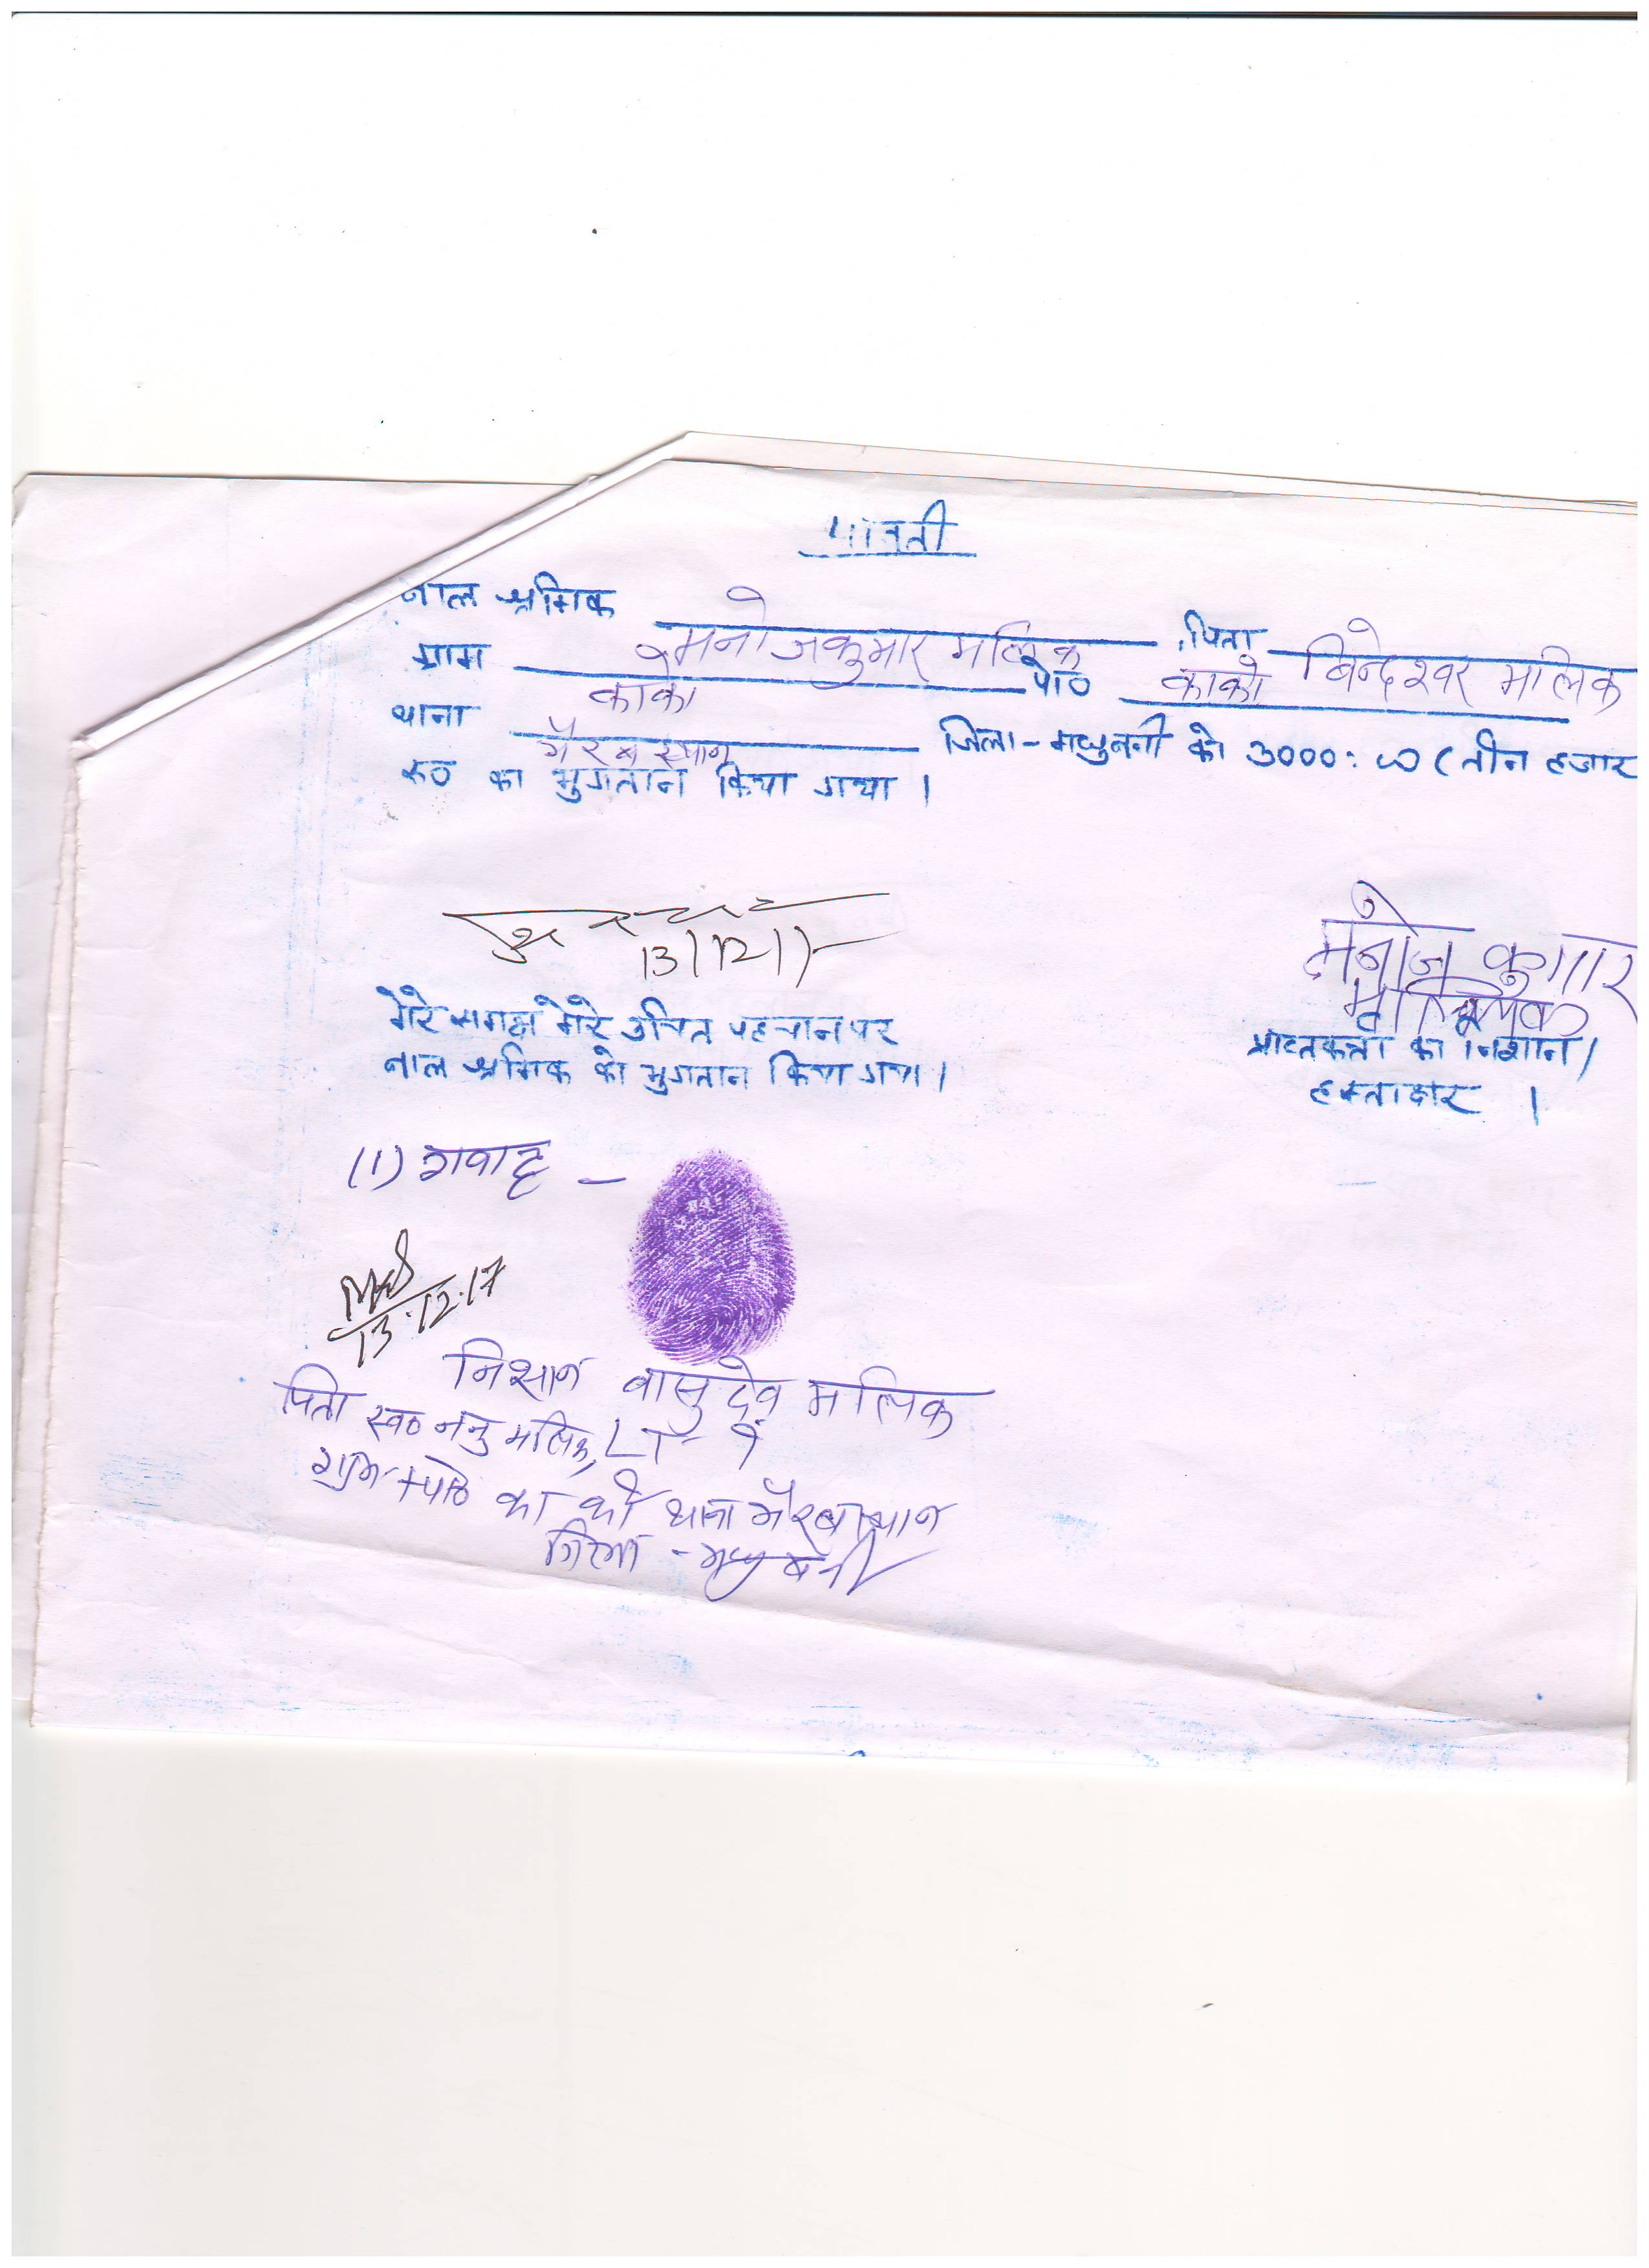 पावती
बाल श्रमिक मनोज कुमार मलिक पिता बिन्देश्वर मलिक
ग्राम काको पो० काको
थाना भैरब स्थान जिला-मधुबनी को 3000:00 (तीन हजार
रू० का भुगतान किया गया ।
13/12/17
मनोज कुमार
मलिक
मेरे समक्ष मेरे उचित पहचान पर
बाल श्रमिक को भुगतान किया गया ।
प्राप्तकर्ता का निशान/
हस्ताक्षर ।
(1) गवाह –
13.12.17
निशान वासुदेव मलिक
पिता स्व० ननु मलिक, LT-
ग्राम+पो० काको थाना भैरब स्थान
जिला - मधुबनी